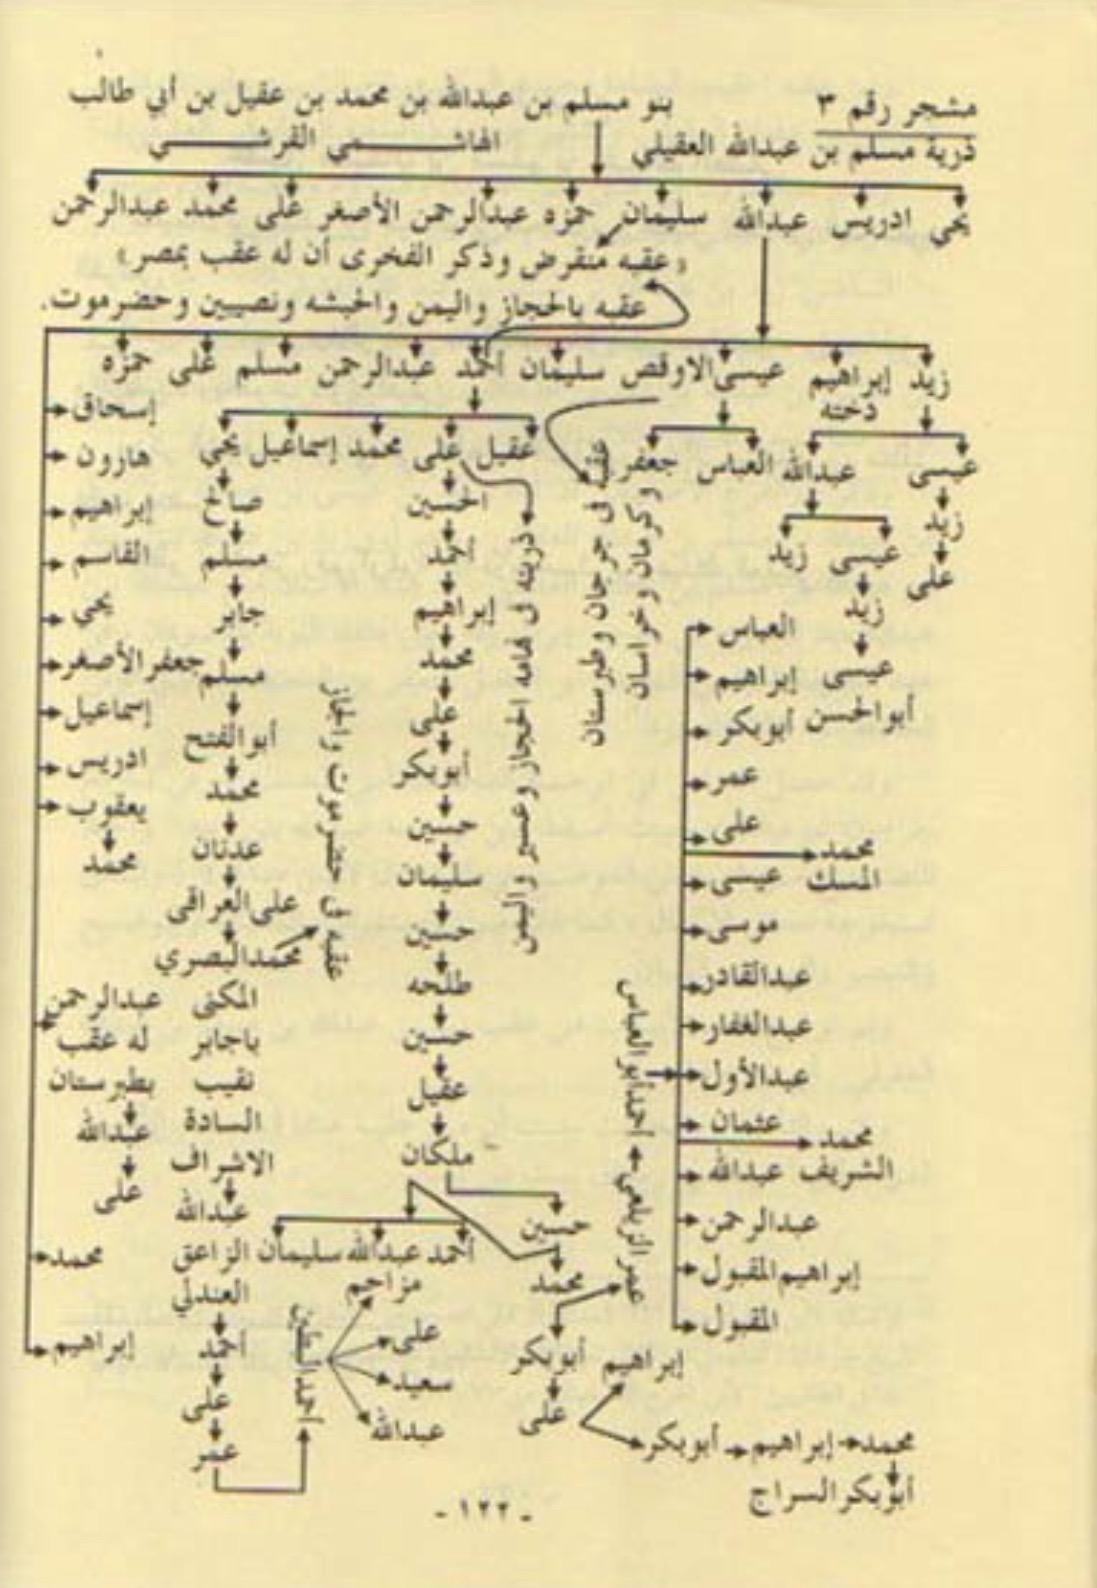 مشجر رقم ٣
بنو مسلم بن عبدالله بن محمد بن عقيل بن أبي طالب
ذرية مسلم بن عبدالله العقيلي
الهاشمي القرشي
يحي ادريس عبدالله سليمان حمزه عبدالرحمن الأصغر على محمد عبدالرحمن
«عقبه منقرض وذكر الفخرى أن له عقب بمصر»
عقبه بالحجاز واليمن والحبشه ونصيبين وحضرموت.
زيد إبراهيم دخنه عيسى الاوقص سليمان أحمد عبدالرحمن مسلم على حمزه
عيسى
زيد
على
عبدالله
عيسى
زيد
زيد
عيسى
أبوالحسن
العباس
جعفر
عقبه فى جرجان وطبرستان
وكرمان وخراسان
عقيل على محمد إسماعيل يحي
ذريته فى تهامه الحجاز وعسير واليمن
الحسين
إبراهيم
محمد
على
أبوبكر
حسين
سليمان
حسين
طلحه
حسين
عقيل
ملكان
حسين
محمد
أحمد عبدالله سليمان
أبوبكر
على
إبراهيم
أبوبكر
إبراهيم
محمد
أبوبكر السراج
عمر الزيلعى
أحمد أبوالعباس
العباس
إبراهيم
أبوبكر
عمر
على
محمد
المسك
عيسى
موسى
عبدالقادر
عبدالغفار
عبدالأول
عثمان
محمد
الشريف
عبدالله
عبدالرحمن
إبراهيم المقبول
المقبول
صالح
مسلم
جابر
مسلم
أبوالفتح
محمد
عدنان
على العراقى
محمد البصري
عقبه فى حضرموت والحجاز
المكنى
باجابر
نقيب
السادة
الاشراف
عبدالله
الزاعق
العندلي
أحمد
على
عمر
مزاحم
على
سعيد
عبدالله
إسحاق
هارون
إبراهيم
القاسم
يحي
جعفر الأصغر
إسماعيل
ادريس
يعقوب
محمد
عبدالرحمن
له عقب
بطبرستان
عبدالله
على
محمد
إبراهيم
- ١٢٢ -